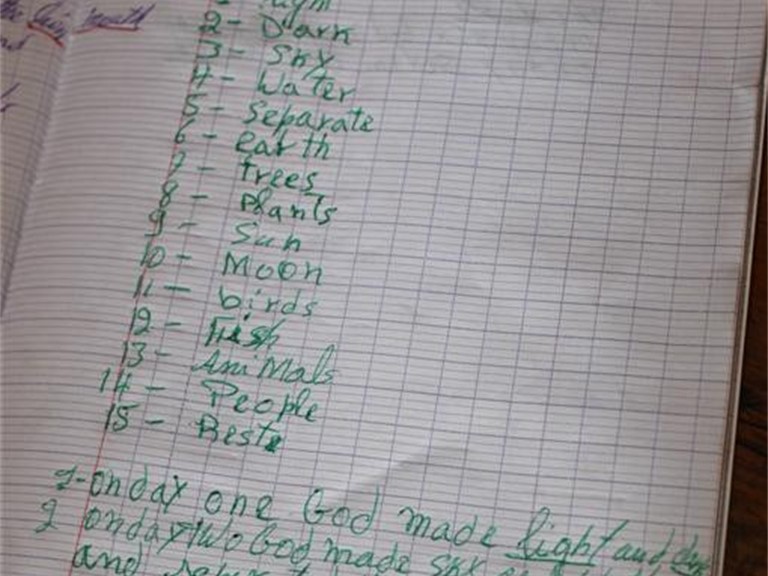 2- Dark
3- Sky
4- Water
5- Separate
6- earth
7- trees
8- Plants
9- Sun
10- Moon
11- birds
12- Fish
13- Animals
14- People
15- Rest
1- on day one God made light and
2 on day two God made sky
and